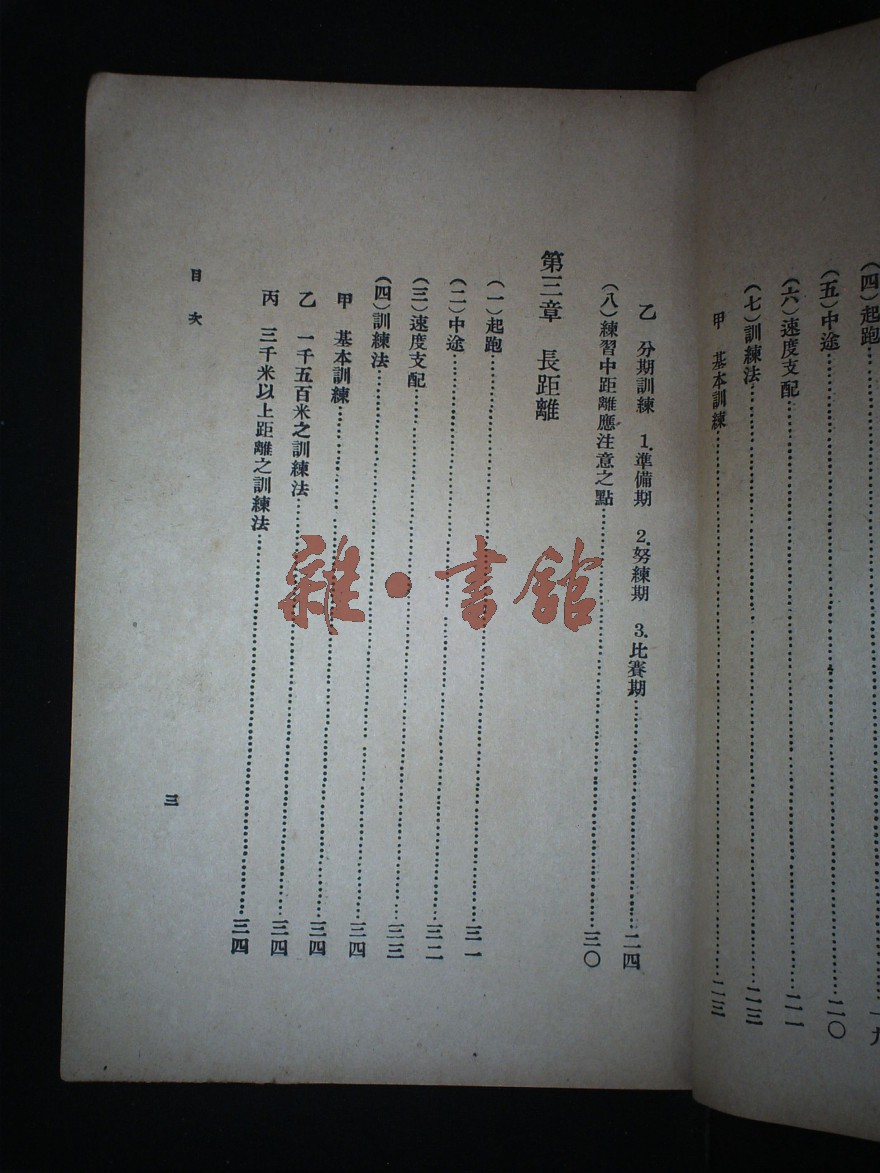 (四)起跑……一九
(五)中途……二〇
(六)速度支配……二一
(七)訓練法……二三
甲 基本訓練……二三
乙 分期訓練 1.準備期 2.努練期 3.比賽期……二四
(八)練習中距離應注意之點……三〇
第三章 長距離
(一)起跑……三一
(二)中途……三二
(三)速度支配……三三
(四)訓練法……三四
甲 基本訓練……三四
乙 一千五百米之訓練法……三四
丙 三千米以上距離之訓練法……三四
目次
三
雜·書館